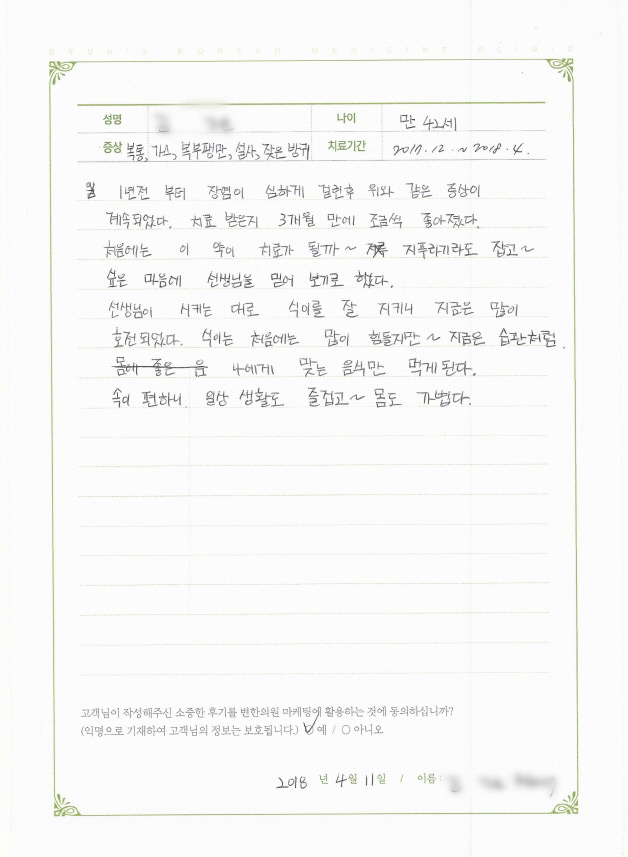 BYUN'S KOREAN MEDICINE CLINIC
성명 나이 만 42세
증상 복통, 가스, 복부팽만, 설사, 잦은 방귀 치료기간 2017.12.~2018.4.
1년전 부터 장염이 심하게 걸린후 위와 같은 증상이
계속되었다. 치료 받은지 3개월 만에 조금씩 좋아졌다.
처음에는 이 약이 치료가 될까~ 지푸라기라도 잡고~
싶은 마음에 선생님을 믿어 보기로 했다.
선생님이 시키는 대로 식이를 잘 지키니 지금은 많이
호전되었다. 식이는 처음에는 많이 힘들지만~ 지금은 습관처럼.
몸에 좋은 음 나에게 맞는 음식만 먹게된다.
속이 편하니 일상 생활도 즐겁고~ 몸도 가볍다.
고객님이 작성해주신 소중한 후기를 변한의원 마케팅에 활용하는 것에 동의하십니까?
(익명으로 기재하여 고객님의 정보는 보호됩니다.) 예 / 아니오
2018 년 4월 11일 / 이름: